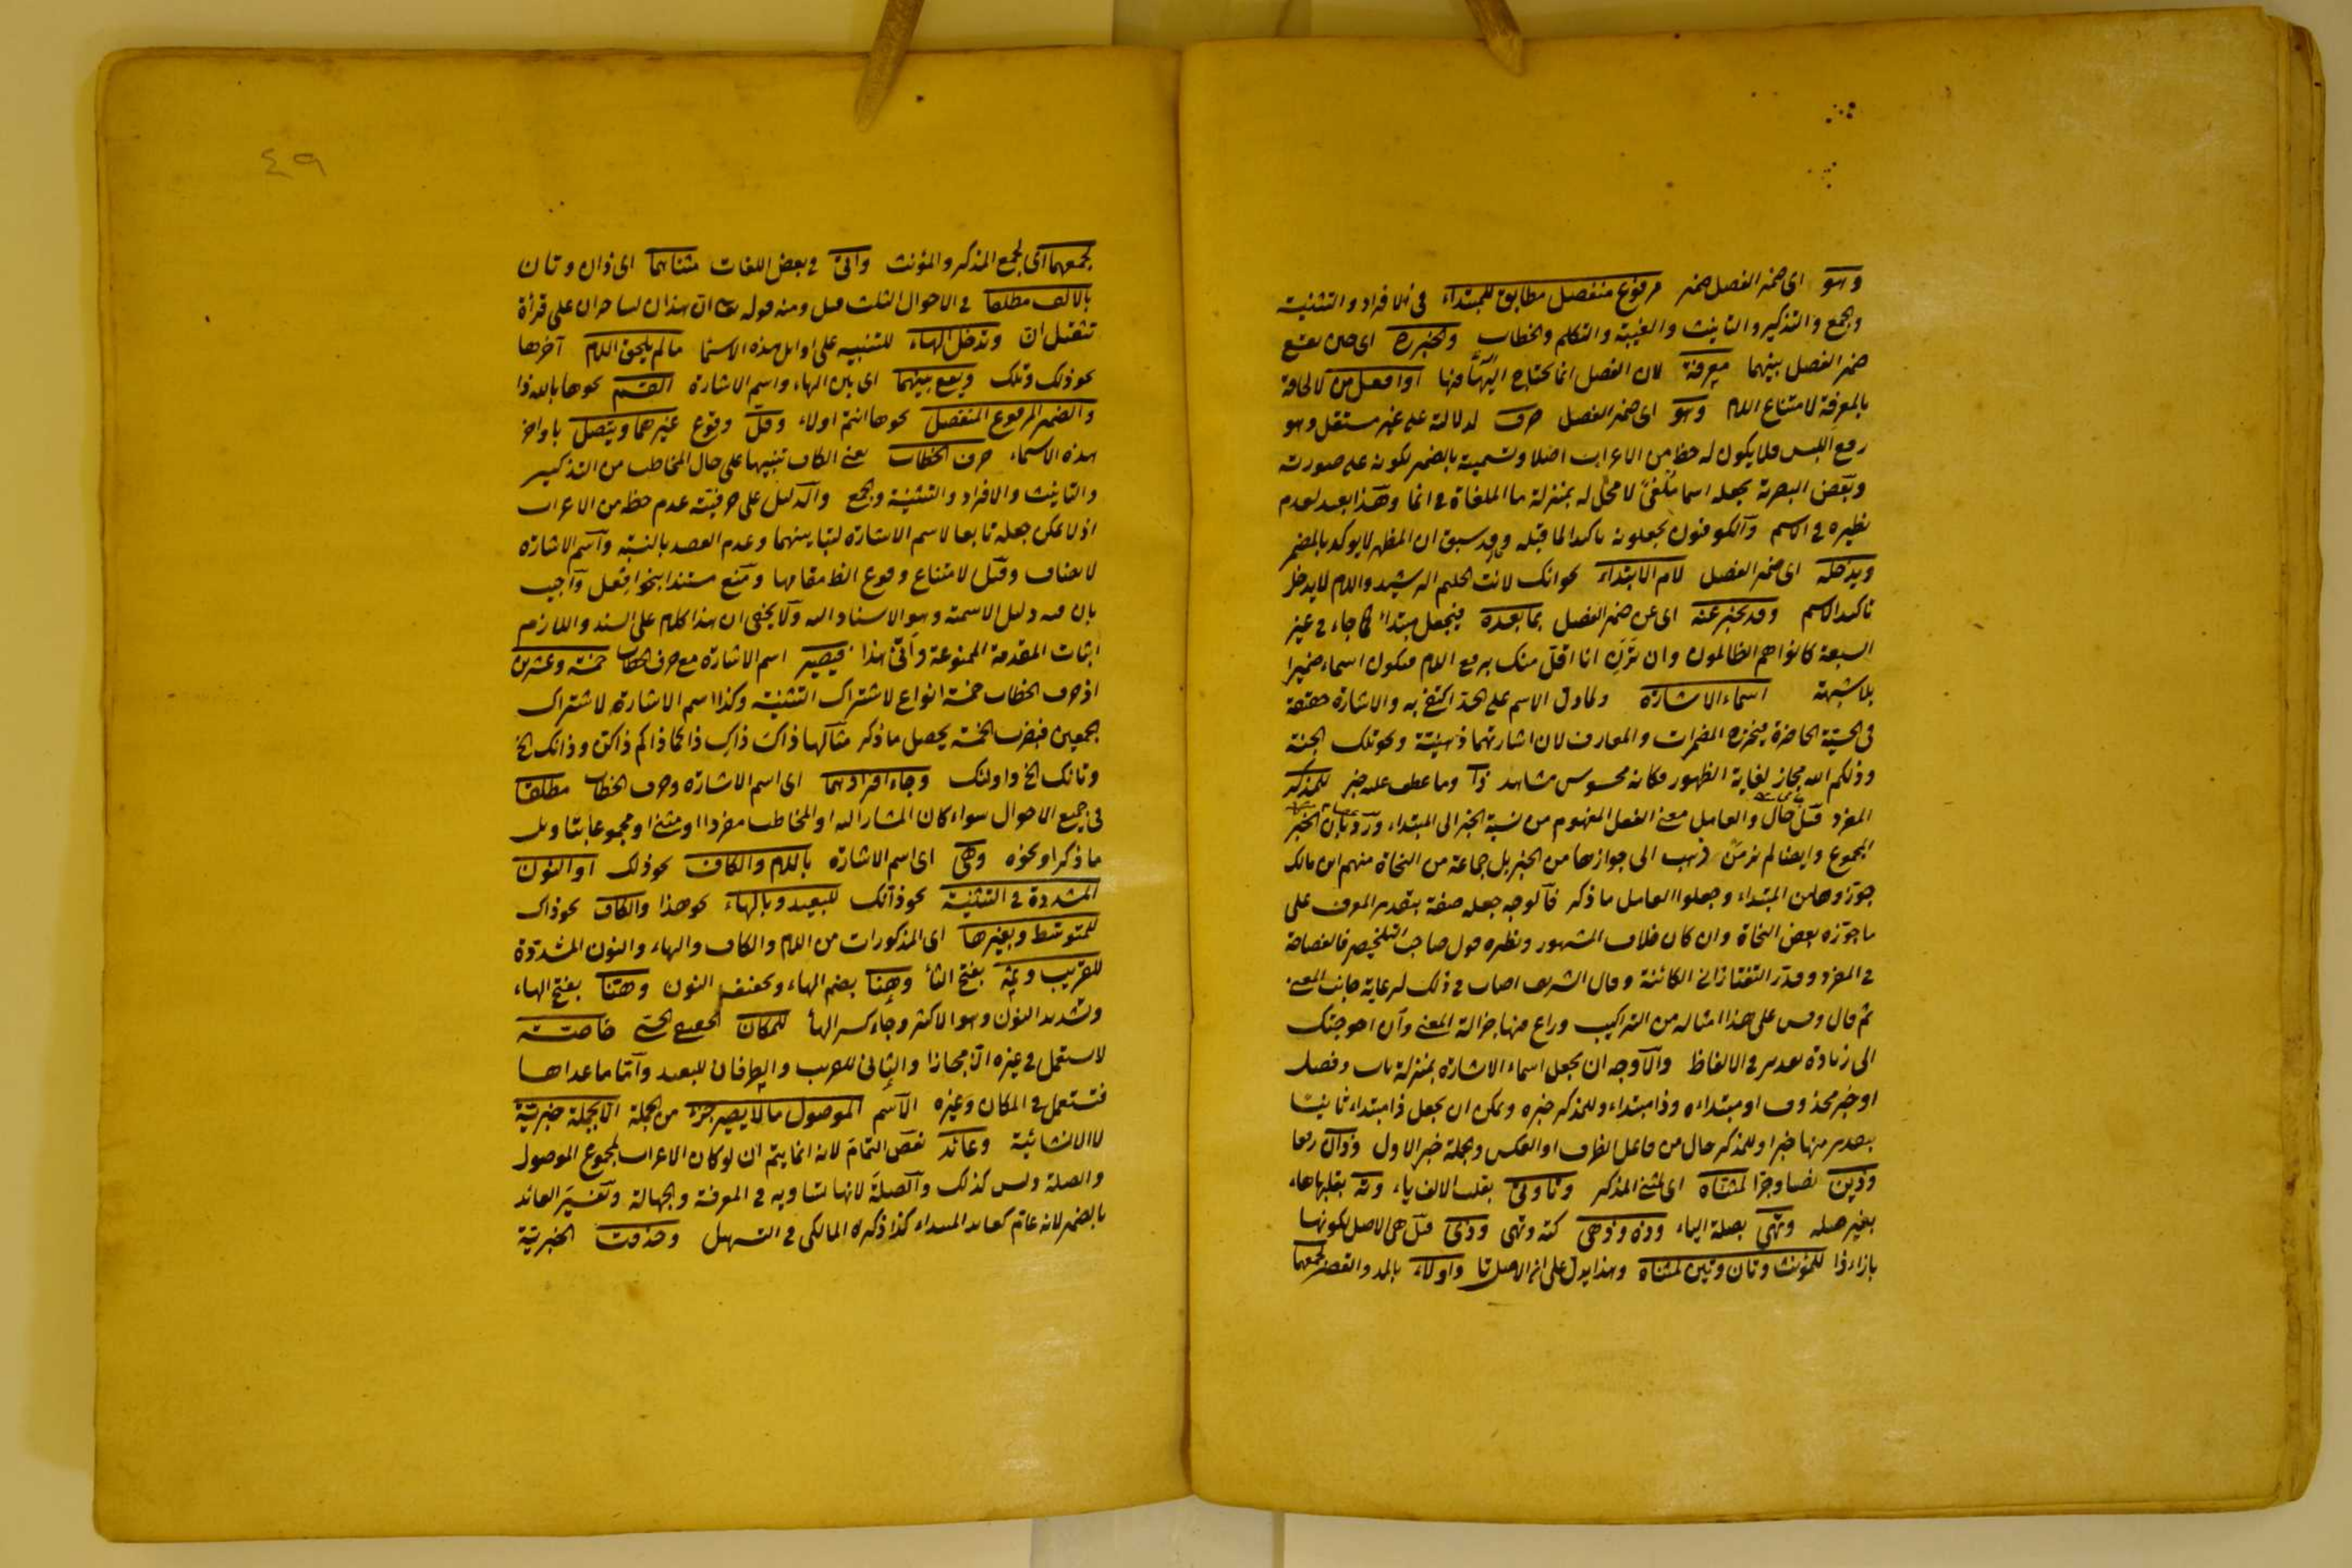 وهو اى ضمير الفصل ضمير مرفوع منفصل مطابق للمبتداء فى الافراد والتثنية
والجمع والتذكير والتانيث والغيبة والتكلم والخطاب وخبره اى حين يقع
ضمير الفصل بينهما معرفة لان الفصل انما يحتاج اليه فيها او افعل من لالحاقه
بالمعرفة لامتناع اللام وهو اى ضمير الفصل حرف لدلالته على غير مستقل وهو
رفع اللبس فلا يكون له حظ من الاعراب اصلا وتسميته بالضمير لكونه على صورته
وبعض البصرية يجعله اسما ملغى لا محل له بمنزلة ما الملغاة فى انما وهذا بعيد لعدم
نظيره فى الاسم والكوفيون يجعلونه تاكيدا لما قبله وقد سبق ان المظهر لا يوكد بالمضمر
ويدخله اى ضمير الفصل لام الابتداء نحو انك لانت الحليم الرشيد واللام لا يدخل
تاكيد الاسم وقد يخبر عنه اى عن ضمير الفصل بما بعده فيجعل مبتدأ كما جاء فى غير
السبعة كانوا هم الظالمون وان ترن انا اقل منك برفع اللام فيكون اسما ضميرا
بلا شبهة اسماء الاشارة ولما دل الاسم على الحد اكتفى به والاشارة حقيقة
فى الحسية الحاضرة فيخرج المضمرات والمعارف لان اشارتهما ذهنية ونحو تلك الجنة
وذلكم الله مجاز لغاية الظهور فكانه محسوس مشاهد ذا وما عطف عليه خبر للمذكر
المفرد قيل حال والعامل معنى الفعل المفهوم من نسبة الخبر الى المبتداء ورد بان الخبر
المجموع وايضا لم نر من ذهب الى جوازها من الخبر بل جماعة من النحاة منهم ابن مالك
جوزوها من المبتداء وجعلوا العامل ما ذكر فالوجه جعله صفة بتقدير المعرف على
ما جوزه بعض النحاة وان كان خلاف المشهور ونظيره قول صاحب التلخيص فالفصاحة
فى المفرد وقدر التفتازانى الكائنة وقال الشريف اصاب فى ذلك لرعاية جانب المعنى
ثم قال وقس على هذا امثاله من التراكيب وراع فيها جزالة المعنى وان احوجتك
الى زيادة تقدير فى الالفاظ والاوجه ان يجعل اسماء الاشارة بمنزلة باب وفصل
او خبر محذوف او مبتداءه وذا مبتداء وللمذكر خبره ويمكن ان يجعل ذا مبتداء ثانيا
بتقدير منها خبرا وللمذكر حال من فاعل الظرف او العكس والجملة خبر الاول وذان رفعا
وذين نصبا وجرا لمثناه اى لمثنى المذكر وتا وتى بقلب الالف ياء وته بقلبها هاء
بغير صلة وتهى بصلة الياء وذه وذهى كته وتهى وذى قيل هى الاصل لكونها
بازاء ذا للمؤنث وتان وتين لمثناه وهذا يدل على ان الاصل تا واولاء بالمد والقصر لجمعهما
٤٩
لجمعهما اى لجمع المذكر والمؤنث واتى فى بعض اللغات مثناهما اى ذان وتان
بالالف مطلقا فى الاحوال الثلث قيل ومنه قوله تعالى ان هذان لساحران على قرأة
تثقيل ان وتدخل الهاء للتنبيه على اوايل هذه الاسما ما لم يلحق اللام آخرها
نحو ذلك وتلك ويقع بينهما اى بين الهاء واسم الاشارة القسم نحو ها بالله ذا
والضمير المرفوع المنفصل نحو ها انتم اولاء وقل وقوع غيرهما ويتصل باواخر
هذه الاسماء حرف الخطاب يعنى الكاف تنبيها على حال المخاطب من التذكير
والتانيث والافراد والتثنية والجمع والدليل على حرفيته عدم حظه من الاعراب
اذ لا يمكن جعله تابعا لاسم الاشارة لتباينهما وعدم القصد بالنسبة واسم الاشارة
لا يضاف وقيل لامتناع وقوع الظ مقامها ومنع مستندا بنحو افعل واجيب
بان فيه دليل الاسمية وهو الاسناد اليه ولا يخفى ان هذا كلام على السند واللازم
اثبات المقدمة الممنوعة وأتى هذا فيصير اسم الاشارة مع حرف الخطاب خمسة وعشرين
اذ حرف الخطاب خمسة انواع لاشتراك التثنية وكذا اسم الاشارة لاشتراك
الجمعين فبضرب الخمسة يحصل ما ذكر مثالها ذاك ذاك ذاكما ذاكم ذاكن وذانك الخ
وتانك الخ واولئك وجاء افرادهما اى اسم الاشارة وحرف الخطاب مطلقا
فى جميع الاحوال سواء كان المشار اليه او المخاطب مفردا او مثنى او مجموعا بتاويل
ما ذكر او نحوه وهى اى اسم الاشارة باللام والكاف نحو ذلك او النون
المشددة فى التثنية نحو ذانك للبعيد وبالهاء نحو هذا والكاف نحو ذاك
للمتوسط وبغيرها اى المذكورات من اللام والكاف والهاء والنون المشددة
للقريب وثمه بفتح الثا وهنا بضم الهاء وتخفيف النون وهنا بفتح الهاء
وتشديد النون وهو الاكثر وجاء كسر الها للمكان الحقيقى الحسى خاصة
لا يستعمل فى غيره الا مجازا والثانى للقريب والطرفان للبعيد واما ما عداها
فتستعمل فى المكان وغيره الاسم الموصول ما لا يصير جزء من الجملة الا بجملة خبرية
لا الانشائية وعائد نقض التمام لانه انما يتم ان لو كان الاعراب لمجموع الموصول
والصلة وليس كذلك والصلة لانها تساويه فى المعرفة والجهالة وتفسير العائد
بالضمير لانه عام كعائد المبتداء كذا ذكره المالكى فى التسهيل وحذفت الخبرية